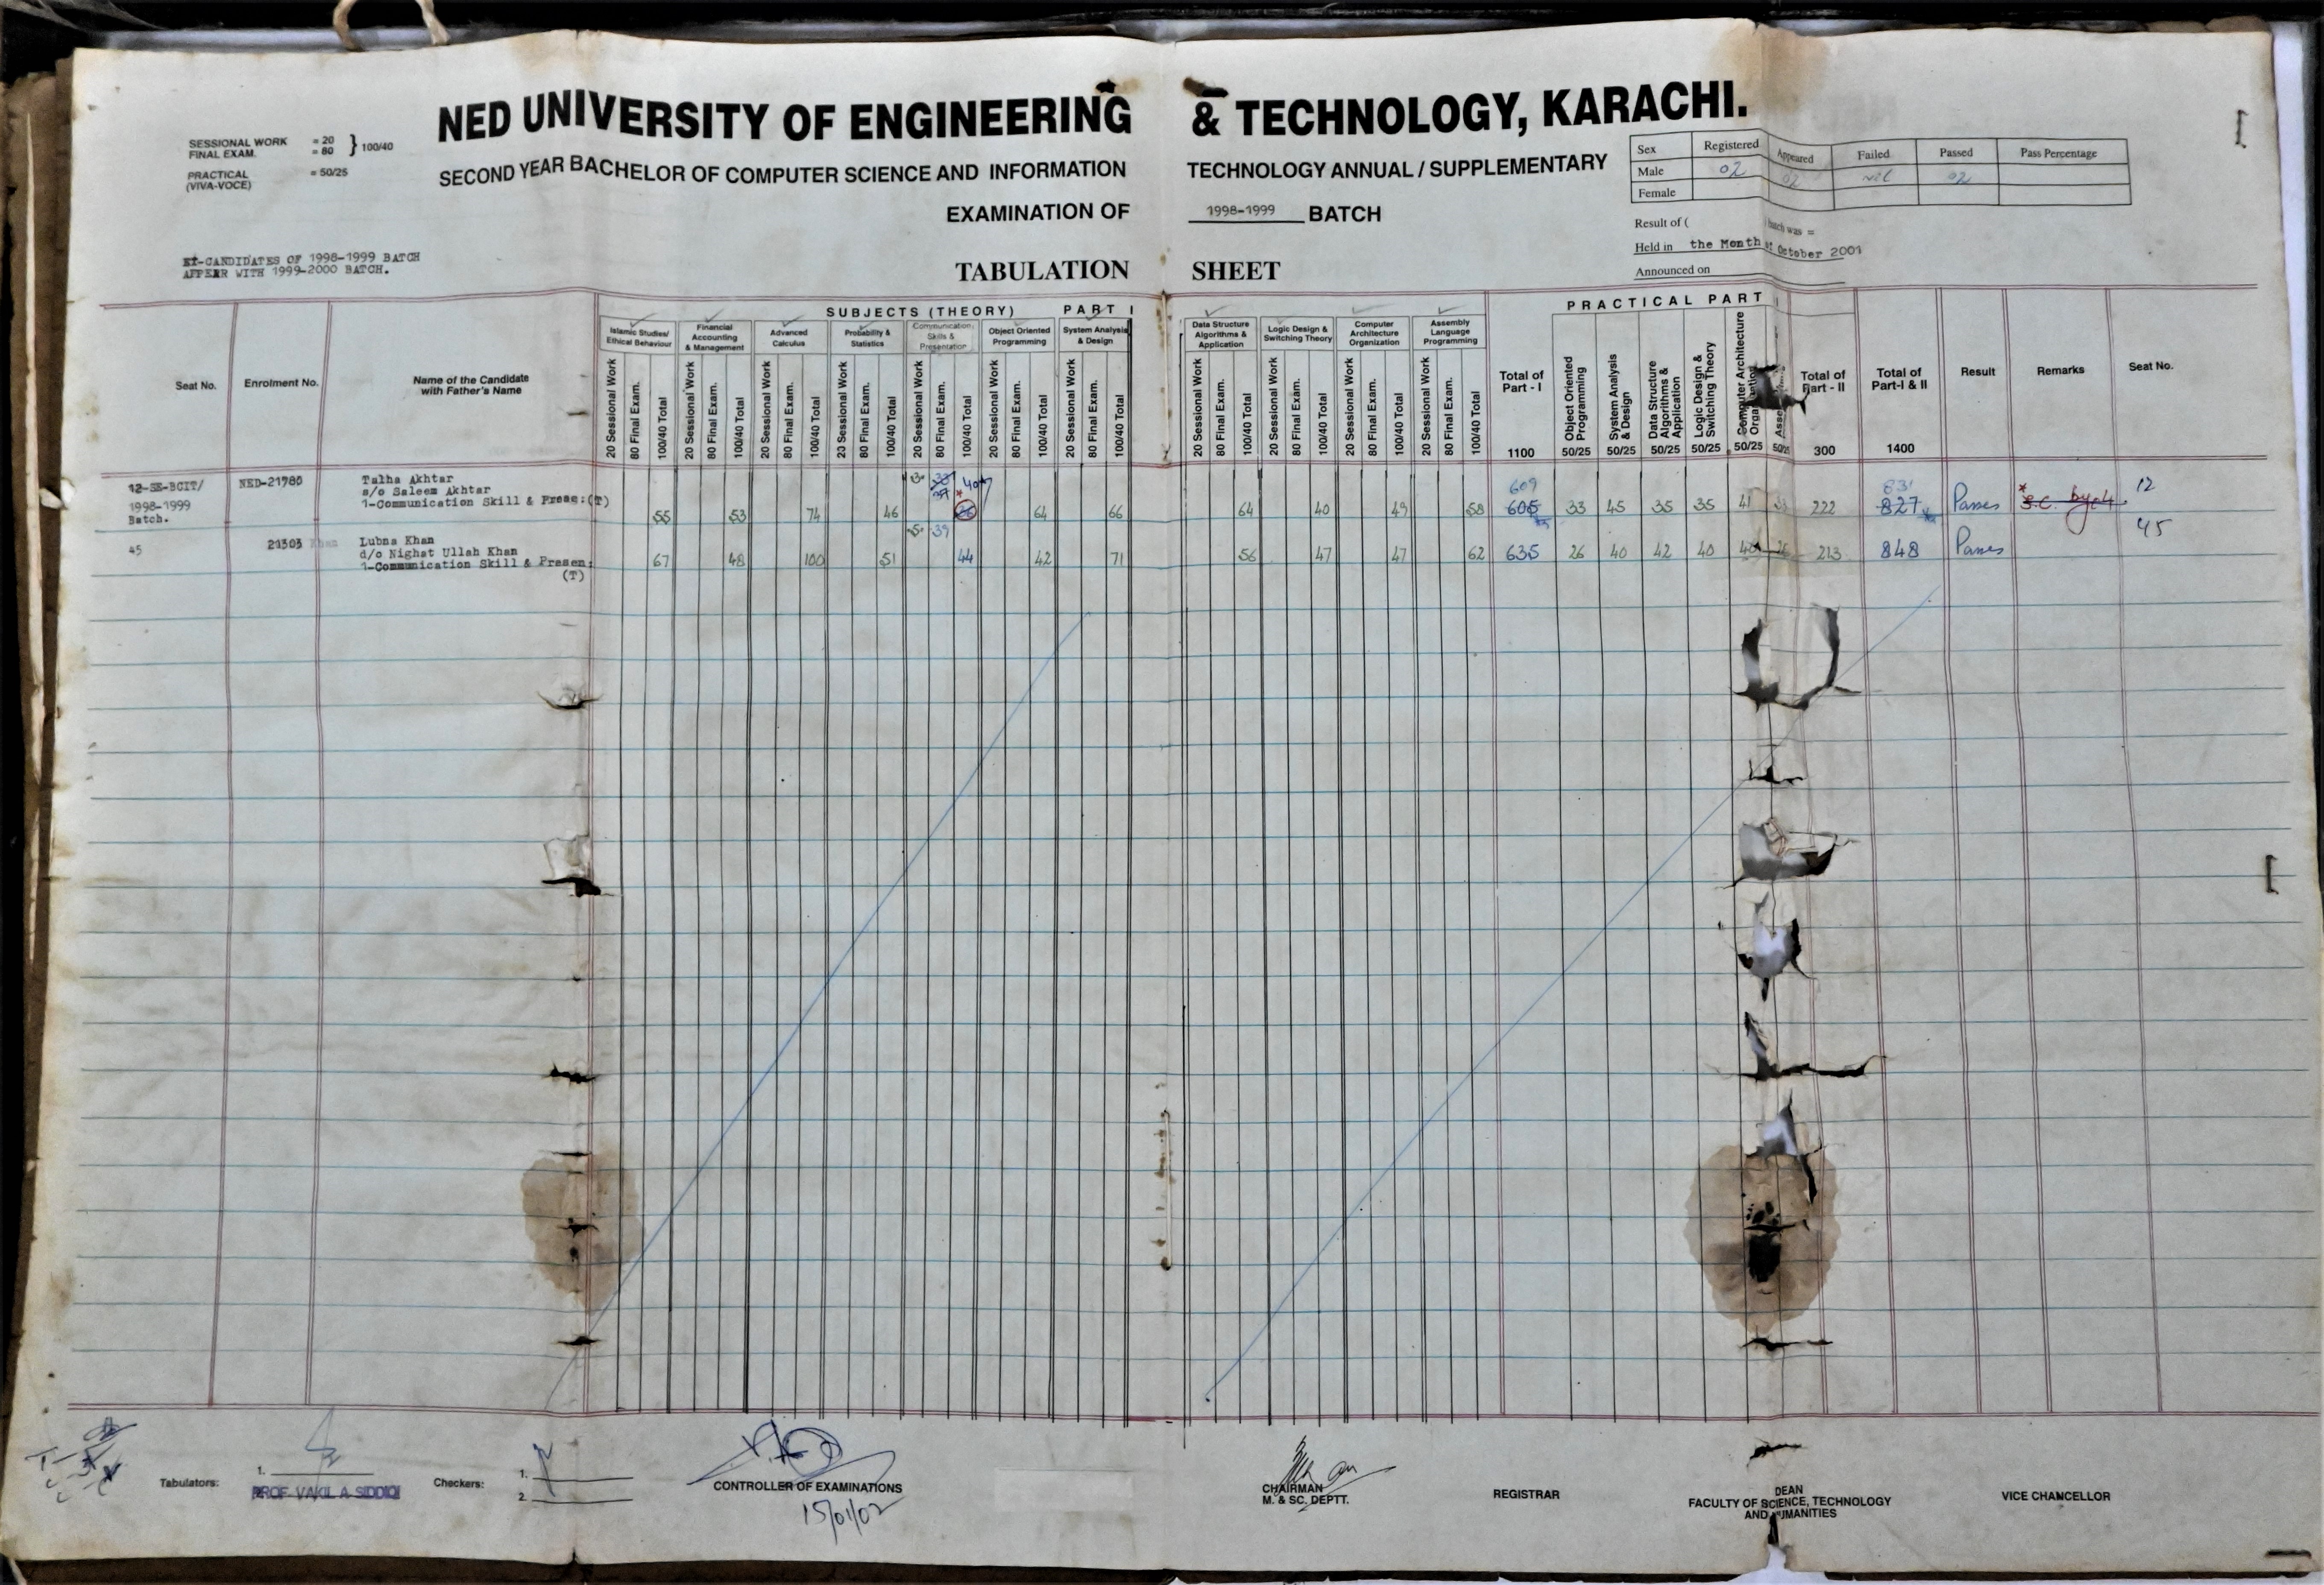 NED UNIVERSITY OF ENGINEERING & TECHNOLOGY, KARACHI.
SECOND YEAR BACHELOR OF COMPUTER SCIENCE AND INFORMATION TECHNOLOGY ANNUAL / SUPPLEMENTARY
EXAMINATION OF 1998-1999 BATCH
TABULATION SHEET
SESSIONAL WORK = 20
FINAL EXAM. = 80 } 100/40
PRACTICAL = 50/25
(VIVA-VOCE)
-CANDIDATES OF 1998-1999 BATCH
APPEAR WITH 1999-2000 BATCH.
Sex Registered Appeared Failed Passed Pass Percentage
Male 02 02 Nil 02
Female
Result of (
batch was =
Held in the Month of October 2001
Announced on
SUBJECTS (THEORY) PART I
PRACTICAL PART
Seat No. Enrolment No. Name of the Candidate with Father's Name
Islamic Studies/ Ethical Behaviour
20 Sessional Work 80 Final Exam. 100/40 Total
Financial Accounting & Management
20 Sessional Work 80 Final Exam. 100/40 Total
Advanced Calculus
20 Sessional Work 80 Final Exam. 100/40 Total
Probability & Statistics
20 Sessional Work 80 Final Exam. 100/40 Total
Communication Skills & Presentation
20 Sessional Work 80 Final Exam. 100/40 Total
Object Oriented Programming
20 Sessional Work 80 Final Exam. 100/40 Total
System Analysis & Design
20 Sessional Work 80 Final Exam. 100/40 Total
Data Structure Algorithms & Application
20 Sessional Work 80 Final Exam. 100/40 Total
Logic Design & Switching Theory
20 Sessional Work 80 Final Exam. 100/40 Total
Computer Architecture Organization
20 Sessional Work 80 Final Exam. 100/40 Total
Assembly Language Programming
20 Sessional Work 80 Final Exam. 100/40 Total
Total of Part - I 1100
Object Oriented Programming 50/25
System Analysis & Design 50/25
Data Structure Algorithms & Application 50/25
Logic Design & Switching Theory 50/25
Computer Architecture 50/25
50/25
Total of Part - II 300
Total of Part-I & II 1400
Result Remarks Seat No.
12-SE-BCIT/ NED-21780 Talha Akhtar
1998-1999 s/o Saleem Akhtar
Batch. 1-Communication Skill & Presc:(T)
55 53 74 46 40 64 66 64 40 49 58 609 605 33 45 35 35 41 222 831 827 Passes 12
45 21303 Lubna Khan
d/o Nighat Ullah Khan
1-Communication Skill & Presen:
(T)
67 48 100 51 5 39 44 42 71 56 47 47 62 635 26 40 42 40 213 848 Passes 45
Tabulators: 1.
PROF. VAKIL A. SIDDIQI
Checkers: 1.
2.
CONTROLLER OF EXAMINATIONS
15/01/02
CHAIRMAN
M. & SC. DEPTT.
REGISTRAR
DEAN
FACULTY OF SCIENCE, TECHNOLOGY
AND HUMANITIES
VICE CHANCELLOR